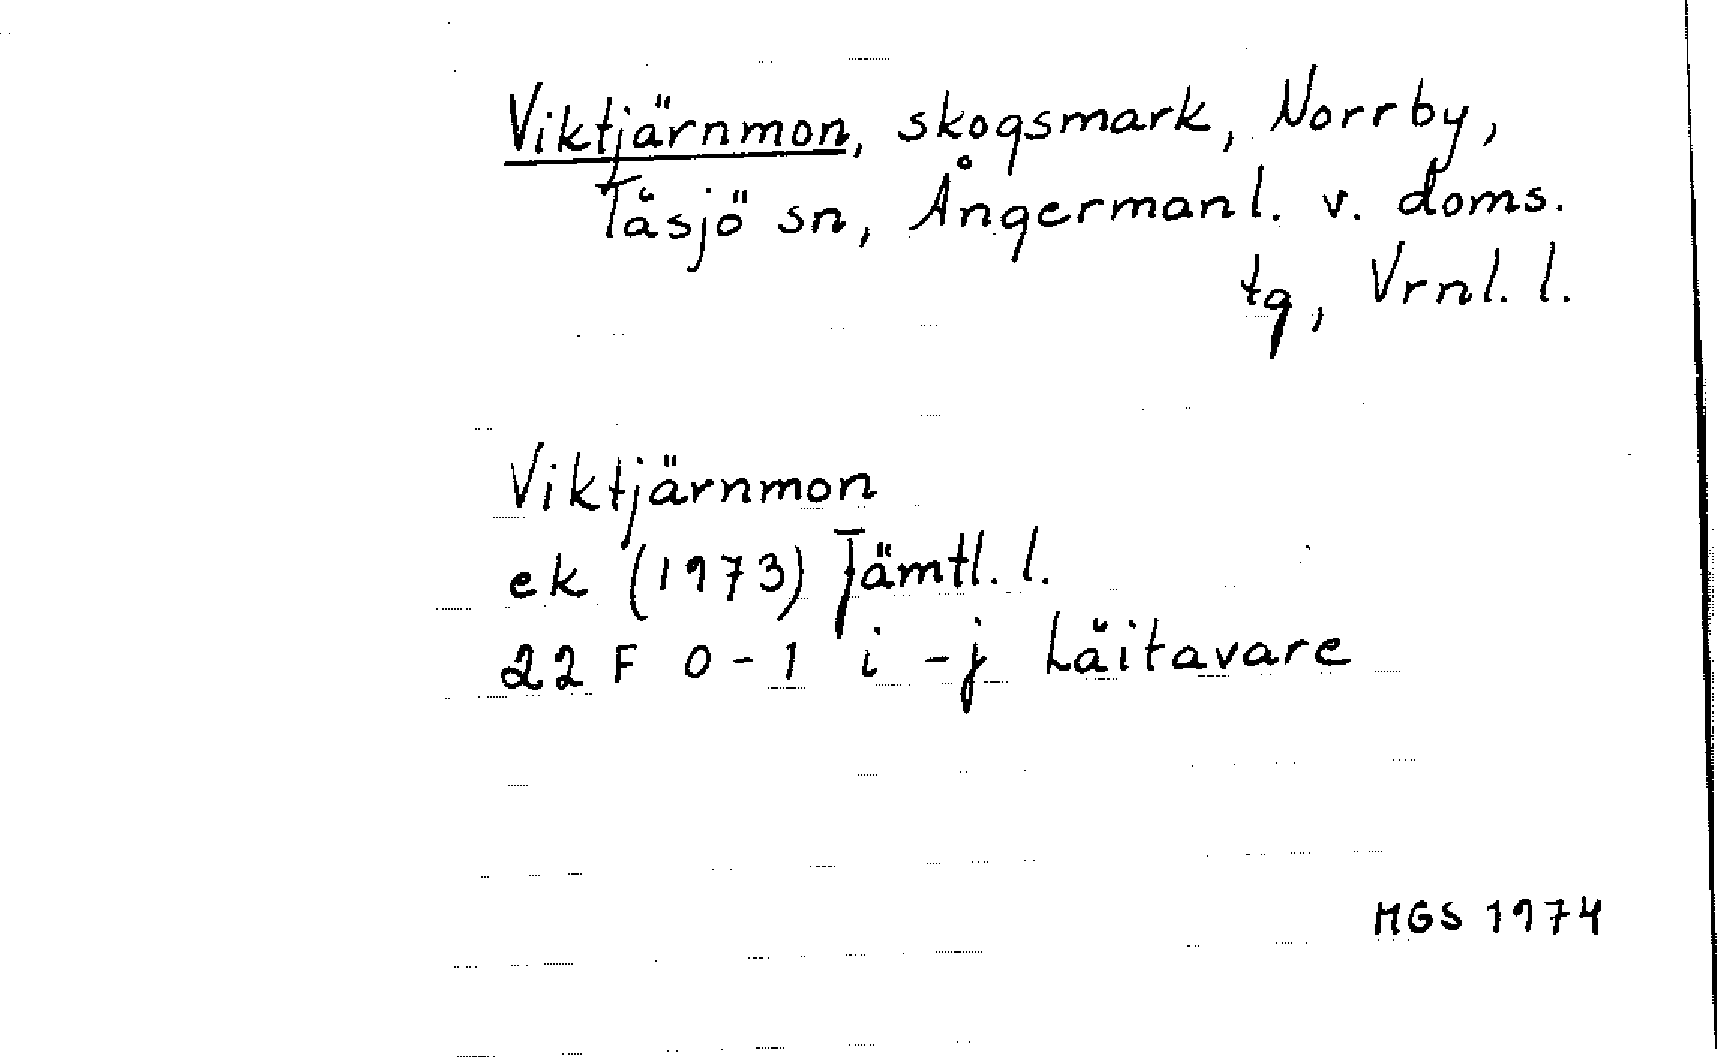 Viktjärnmon, skogsmark, Norrby,
Täsjö sn, Ångermanl. v. doms.
tg, Vrnl. l.
Viktjärnmon
ek (1973) Jämtl. l.
22 F 0-1 i-j Låitavare
MGS 1974